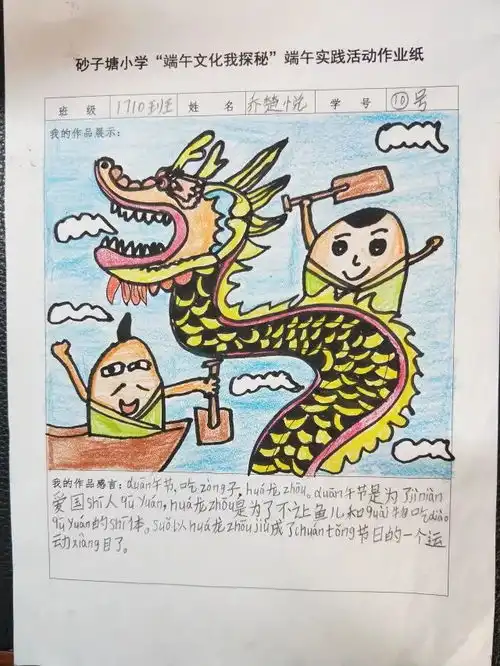 砂子塘小学“端午文化我探秘”端午实践活动作业纸
班 级 1710班 姓 名 乔楚悦 学 号 10号
我的作品展示：
我的作品感言：duān午节，吃zòng子，huá龙zhōu。duān午节是为了jì niàn
爱国shī人qū Yuán，huá龙zhōu是为了不让鱼儿和guài物吃diào
qū Yuán的shī体。suǒ以huá龙zhōu jiù成了chuán tǒng节日的一个运
动xiàng目了。